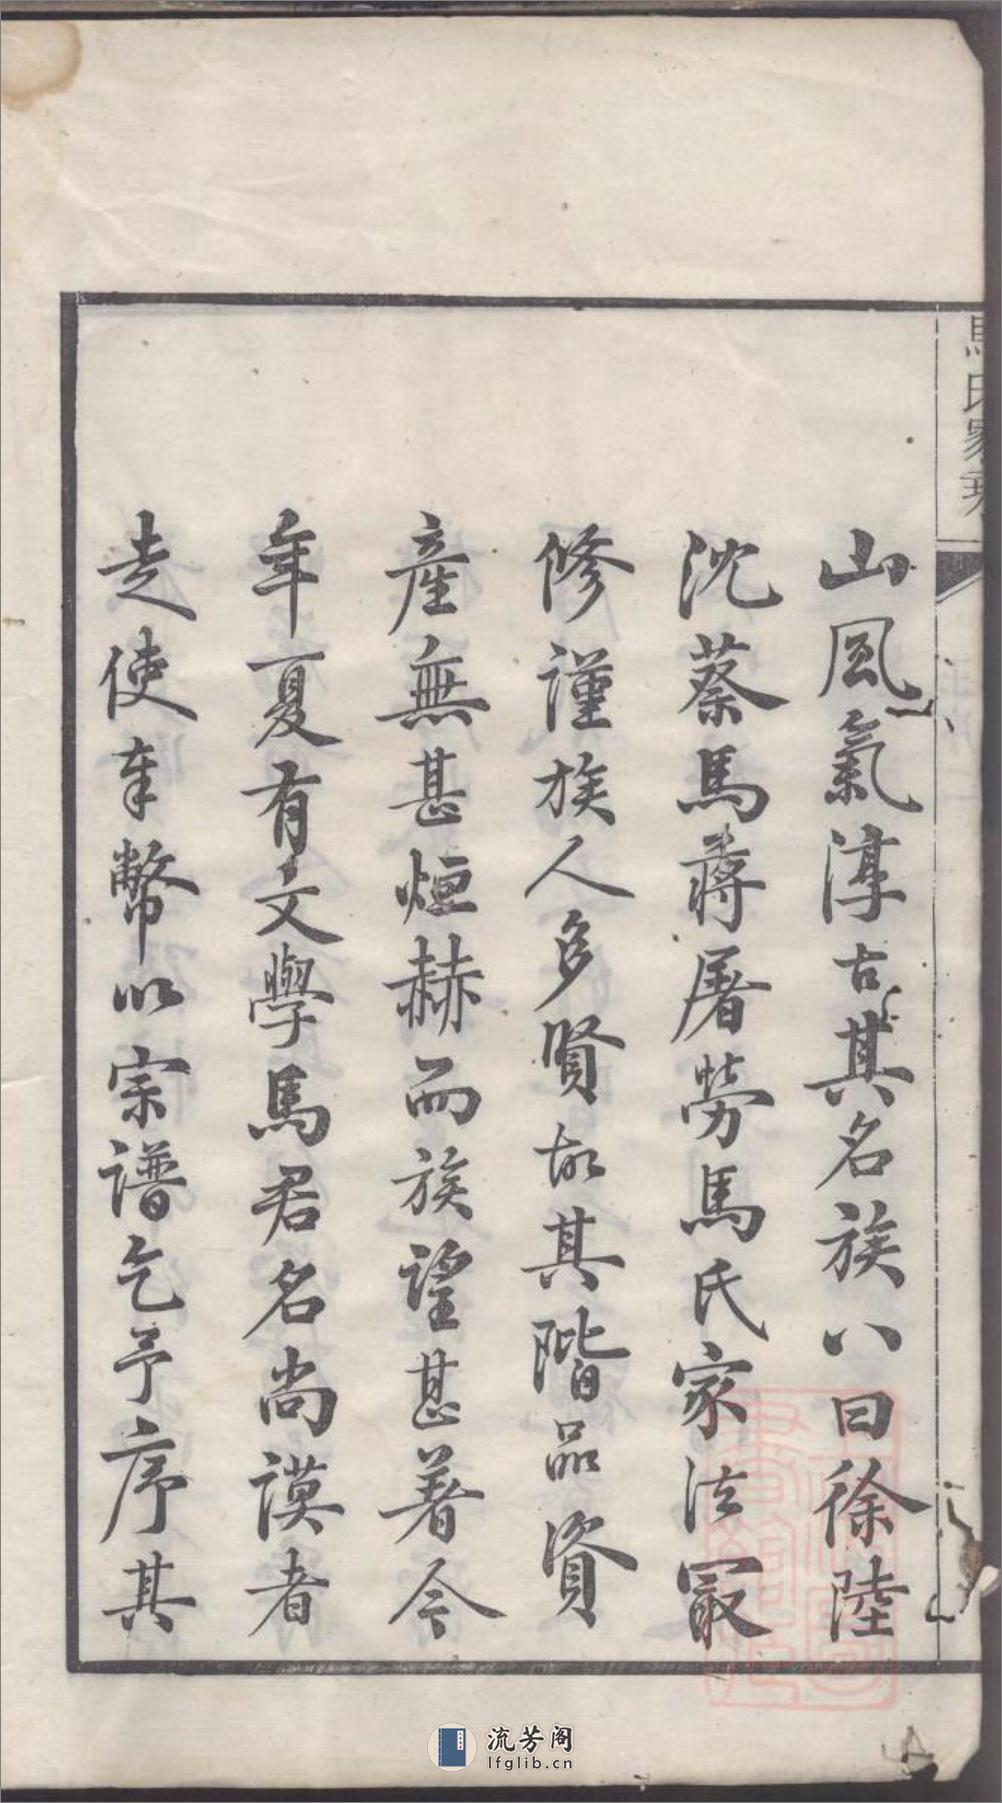 馬氏家乘
山風氣淳古其名族八曰徐陸
沈蔡馬蔣屠勞馬氏家法冣
修謹族人多賢故其階品資
產無甚烜赫而族望甚著今
年夏有文學馬君名尚謨者
走使奉幣以宗譜乞予序其
流芳阁
lfglib.cn